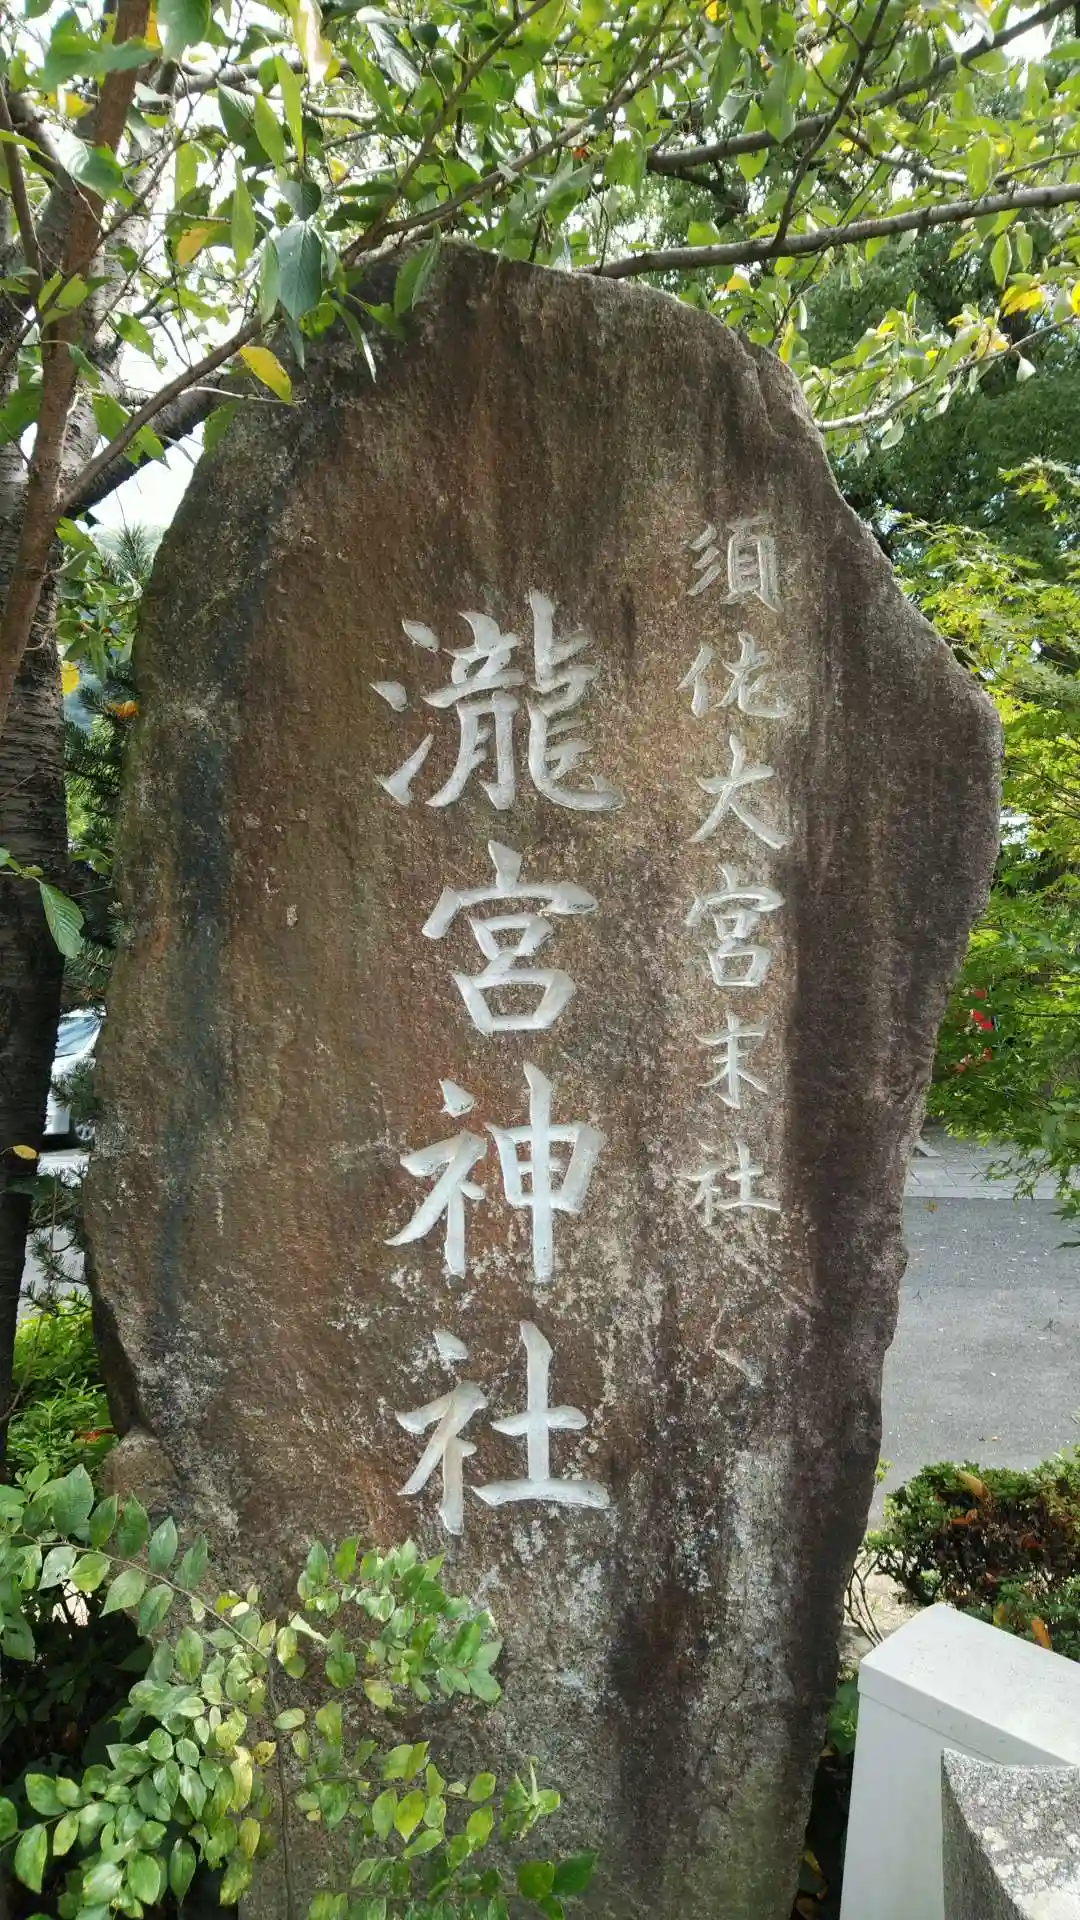 須佐大宮末社
瀧宮神社